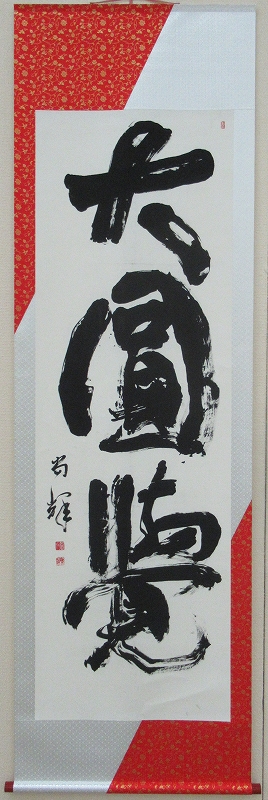 大圓覺
尚輝